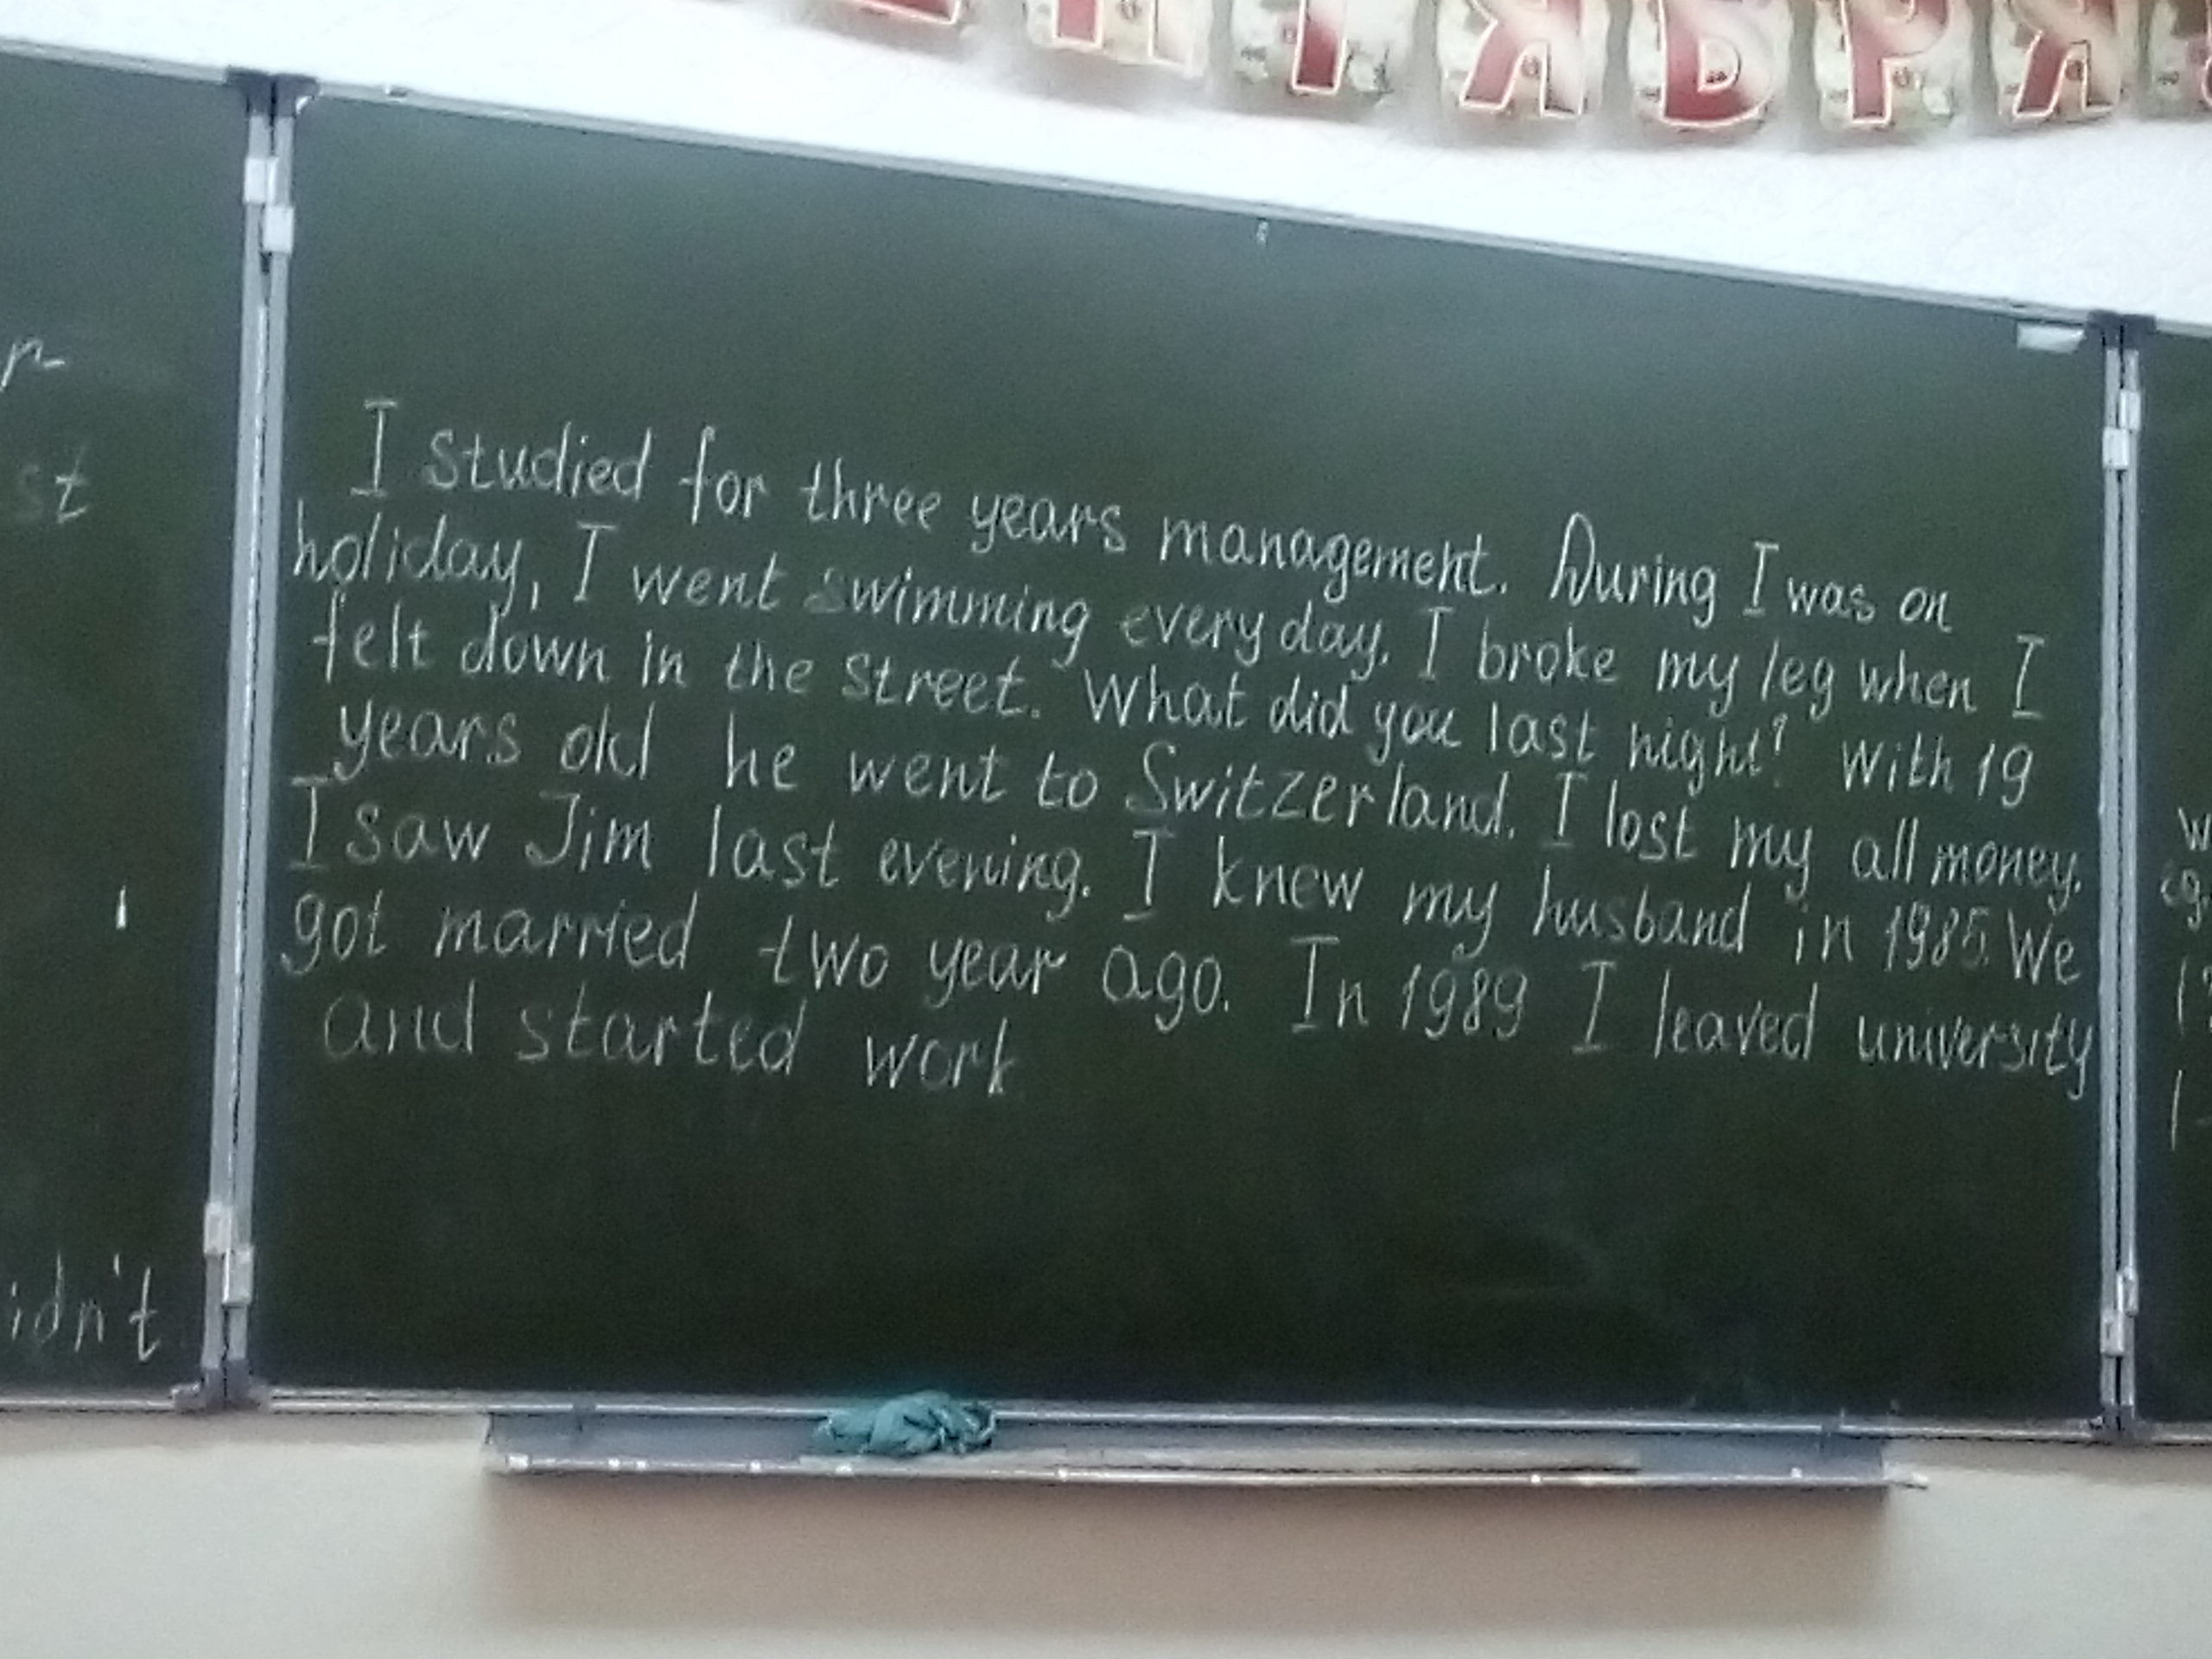 НТЯБРЯ
r-
st
idn't
I studied for three years management. During I was on
holiday, I went swimming every day. I broke my leg when I
felt down in the street. What did you last night? With 19
years old he went to Switzerland. I lost my all money.
I saw Jim last evening. I knew my husband in 1985. We
got married two year ago. In 1989 I leaved university
and started work